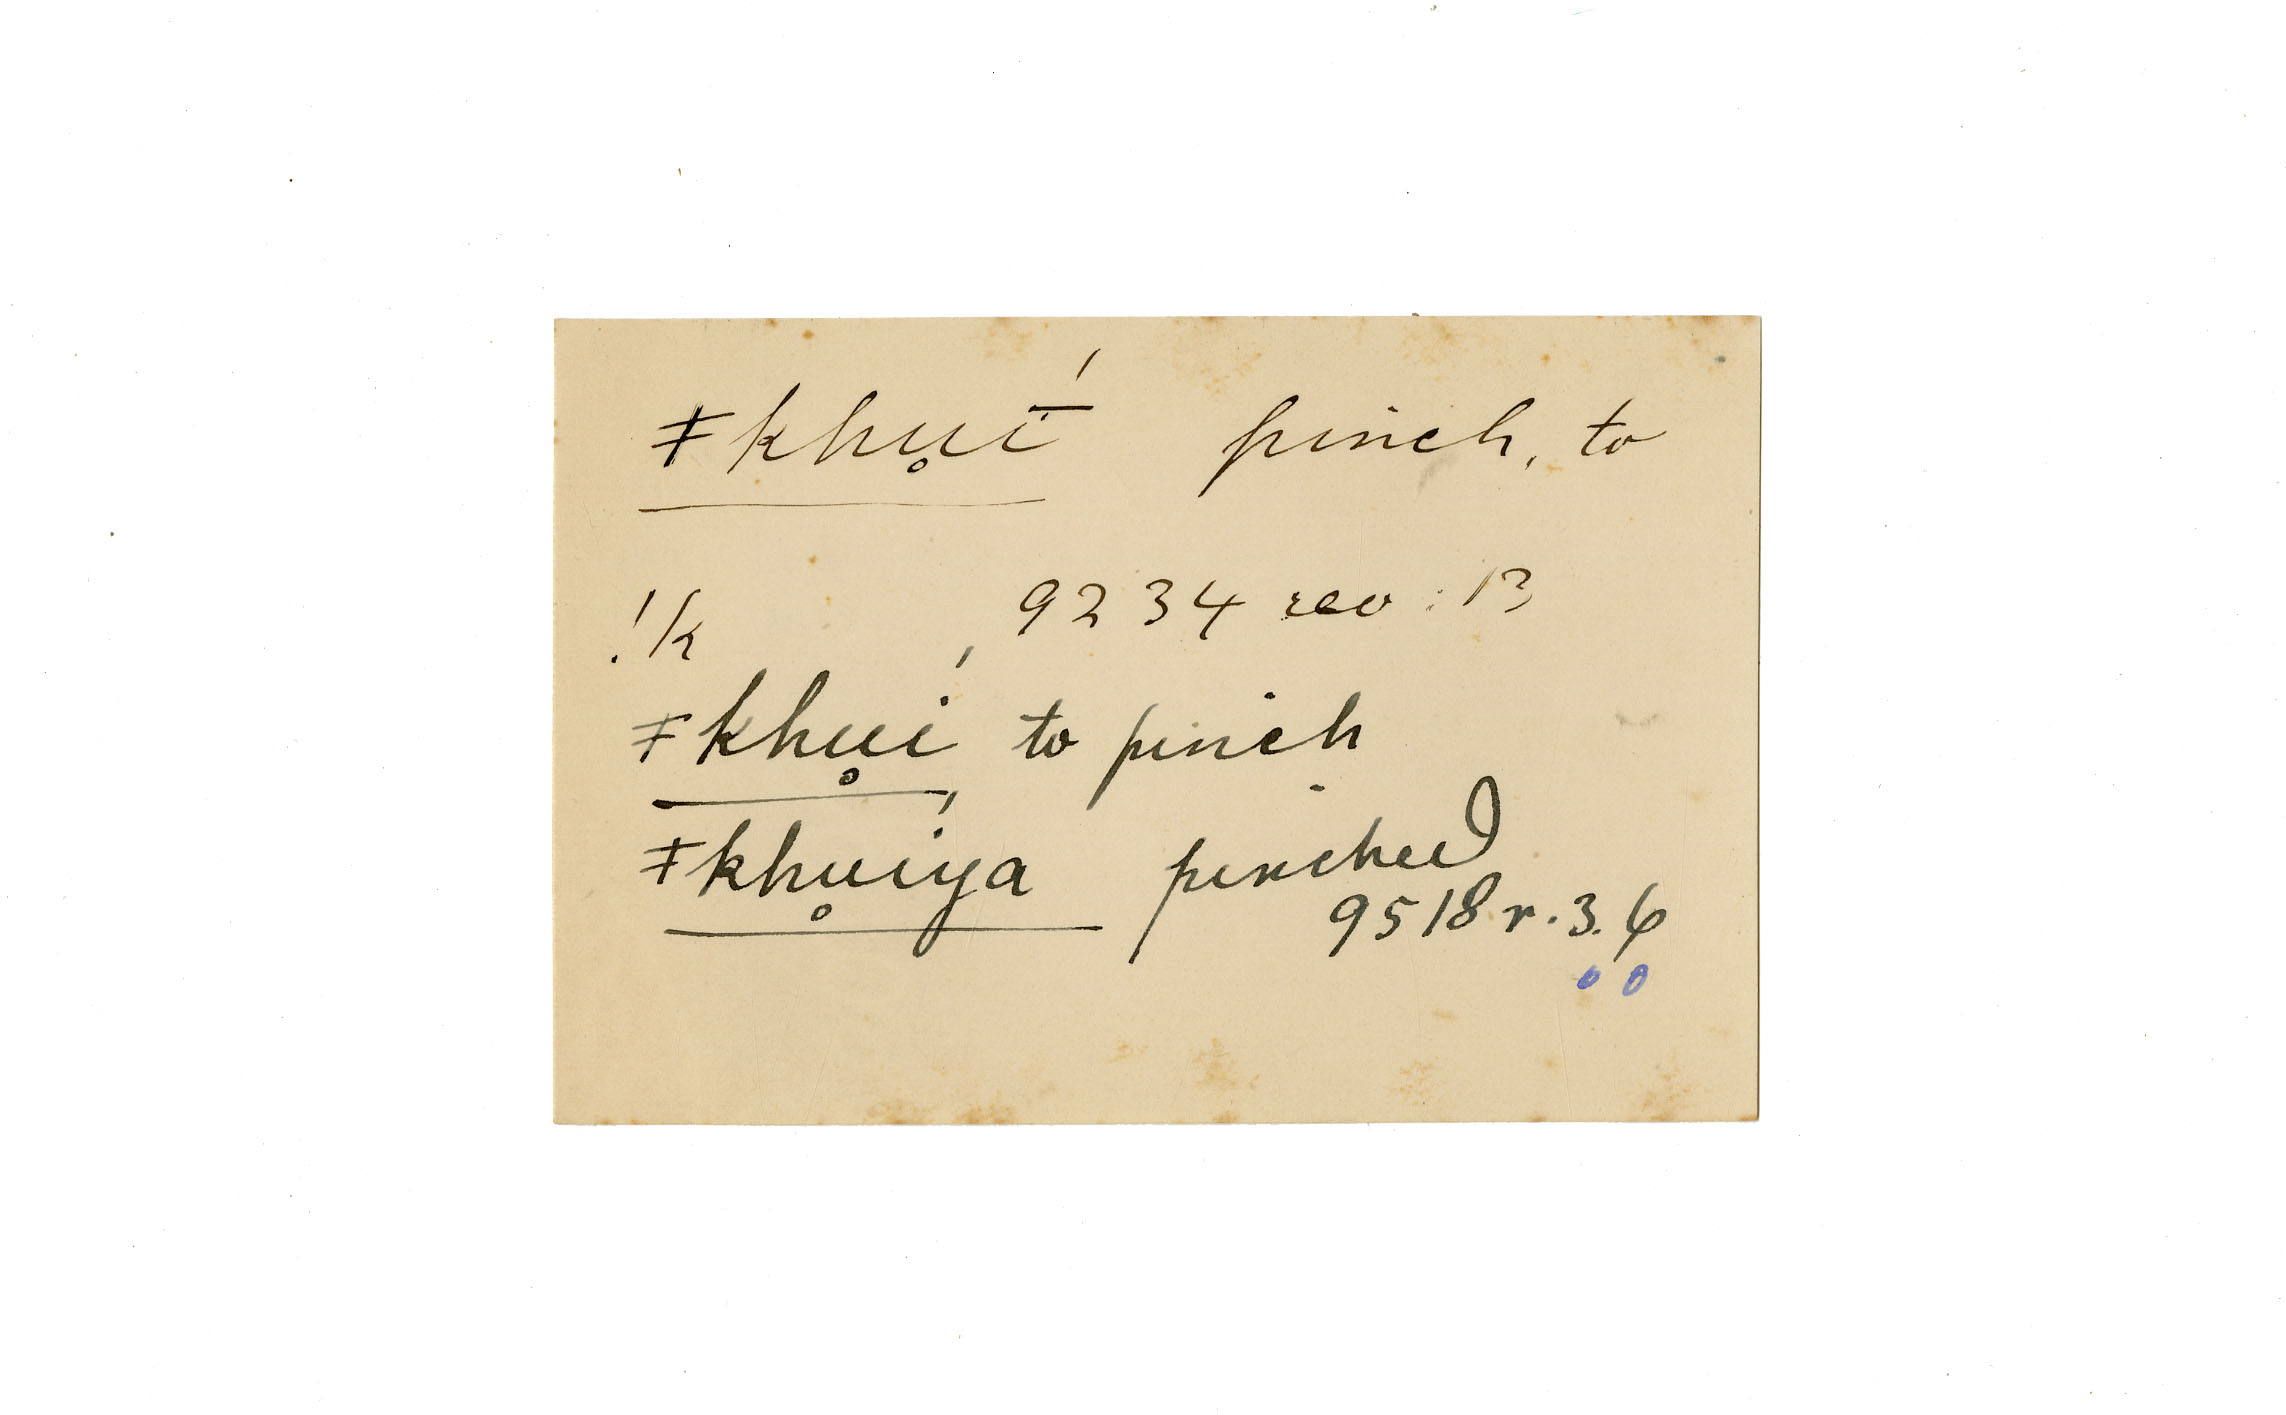 ǂkhu̥ī́ pinch, to
!k 9234 rev: 13
ǂkhu̥í to pinch
ǂkhu̥íya pinched
9518 r. 3. 6